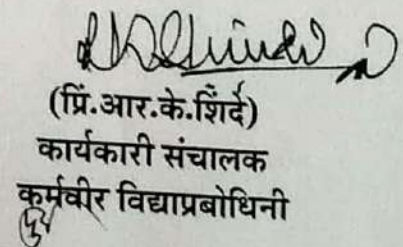 (प्रिं.आर.के.शिंदे)
कार्यकारी संचालक
कर्मवीर विद्याप्रबोधिनी